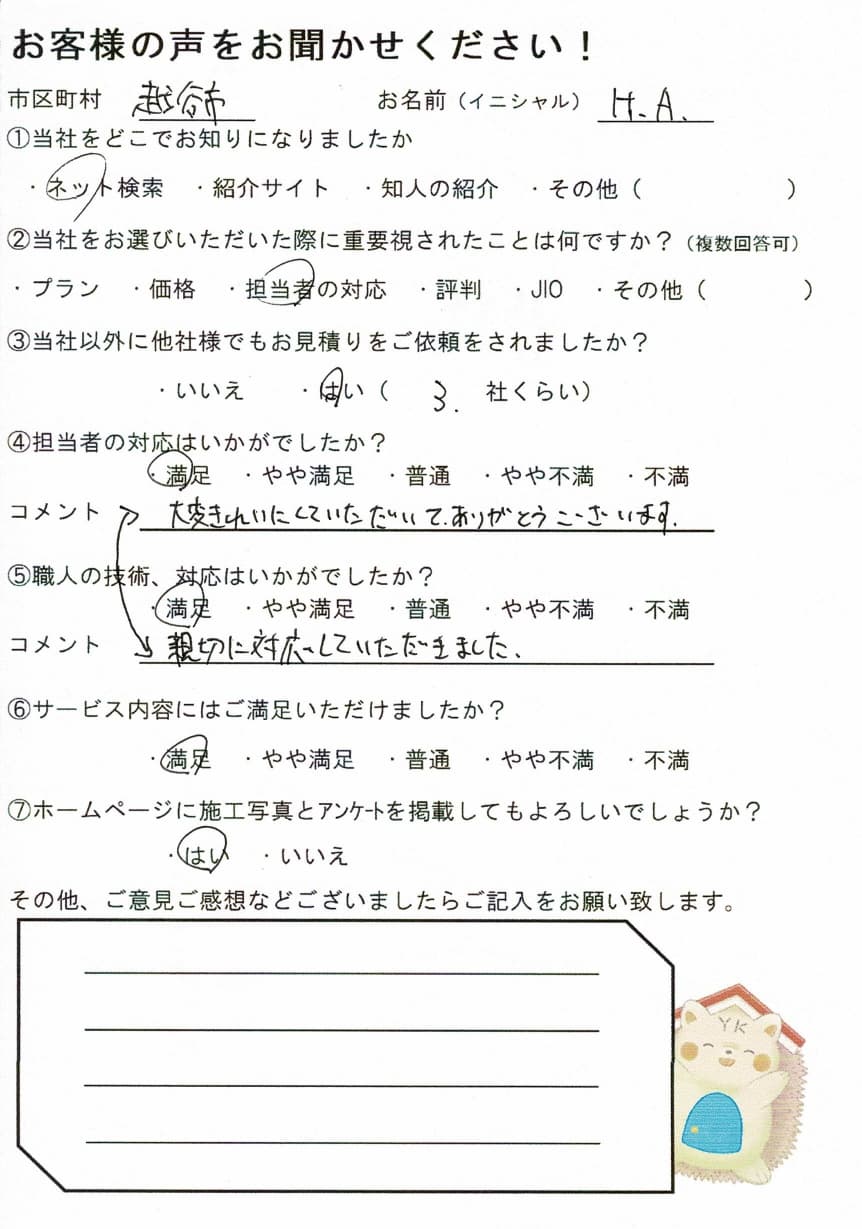 お客様の声をお聞かせください！
市区町村 越谷市 お名前（イニシャル） H.A.
①当社をどこでお知りになりましたか
・ネット検索 ・紹介サイト ・知人の紹介 ・その他（ ）
②当社をお選びいただいた際に重要視されたことは何ですか？（複数回答可）
・プラン ・価格 ・担当者の対応 ・評判 ・JIO ・その他（ ）
③当社以外に他社様でもお見積りをご依頼をされましたか？
・いいえ ・はい（ 3. 社くらい）
④担当者の対応はいかがでしたか？
・満足 ・やや満足 ・普通 ・やや不満 ・不満
コメント 大変きれいにしていただいて、ありがとうございます。
⑤職人の技術、対応はいかがでしたか？
・満足 ・やや満足 ・普通 ・やや不満 ・不満
コメント 親切に対応していただきました、
⑥サービス内容にはご満足いただけましたか？
・満足 ・やや満足 ・普通 ・やや不満 ・不満
⑦ホームページに施工写真とｱﾝｹｰﾄを掲載してもよろしいでしょうか？
・はい ・いいえ
その他、ご意見ご感想などございましたらご記入をお願い致します。
YK